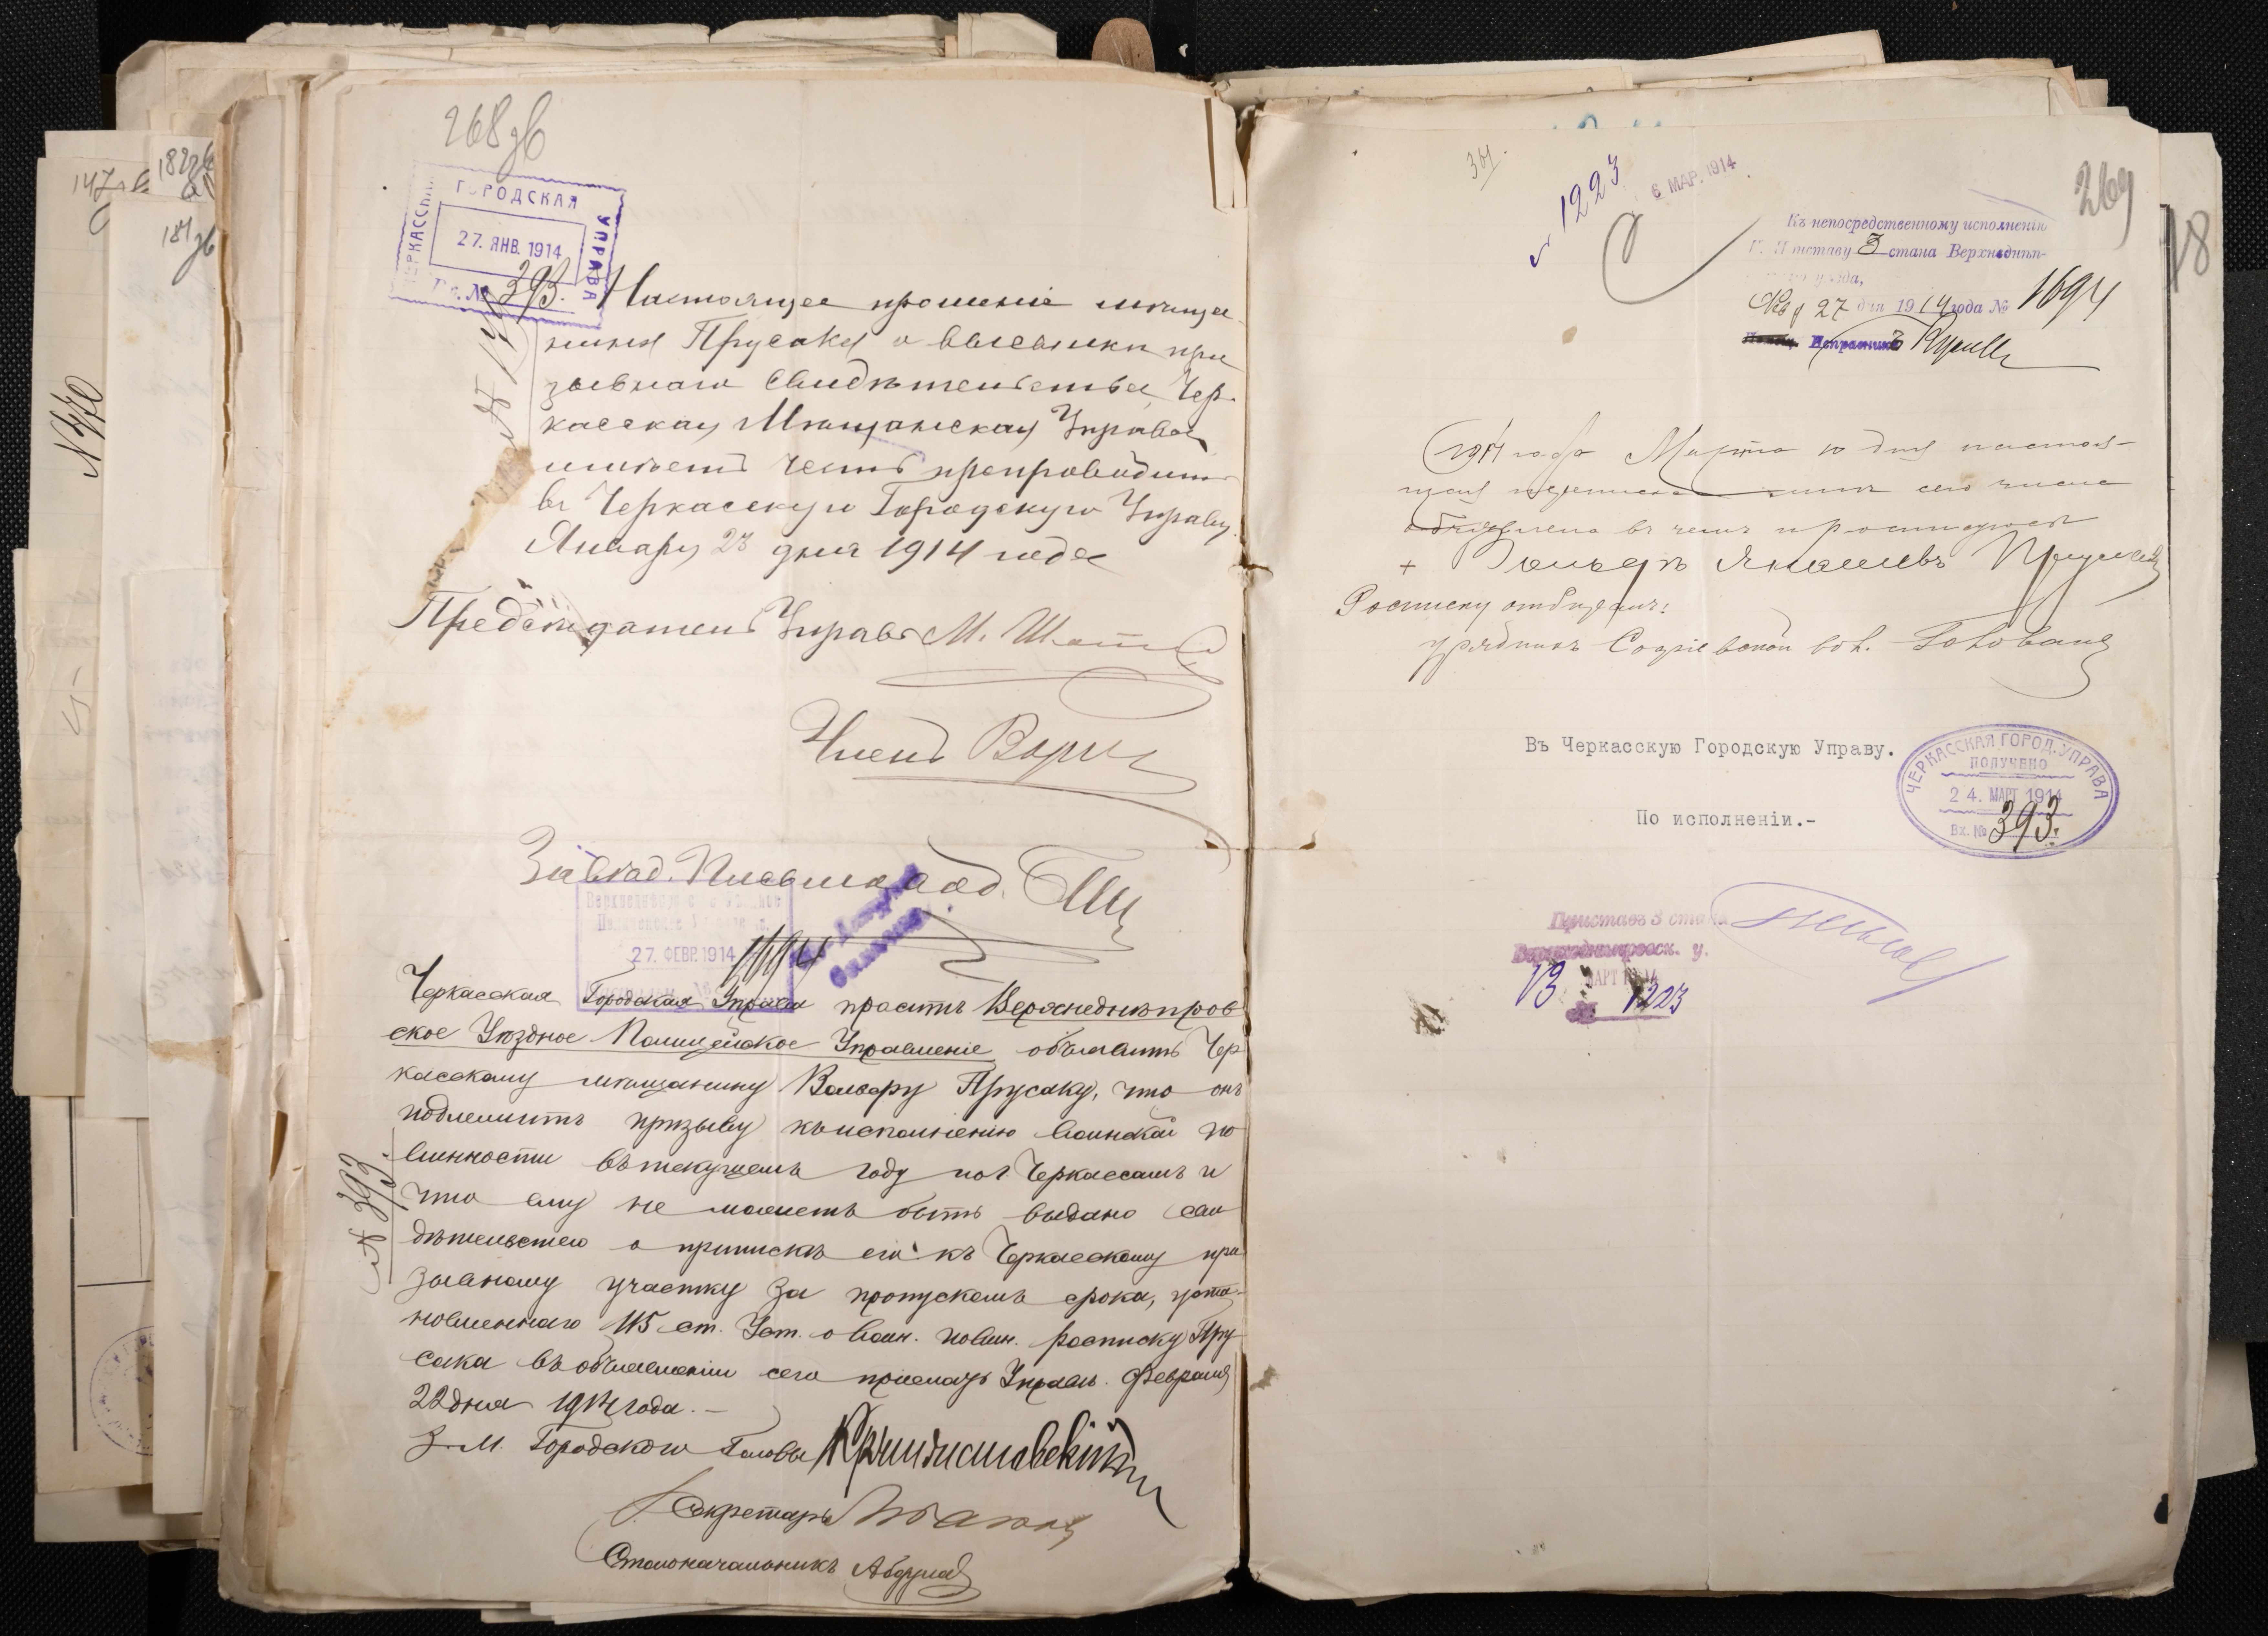 147 зв
182 зв
181 зв
N 770
268 зв
ГОРОДСКАЯ
ЧЕРКАССКАЯ
УПРАВА
27. ЯНВ. 1914
Вх. № 393.
Настоящее прошеніе мѣща
нина Прусака о высылкѣ при
зывнаго свидѣтельства, Чер-
касская Мѣщанская Управа
имѣетъ честь препроводить
въ Черкасскую Городскую Управу.
Января 23 дня 1914 года
Предсѣдатель Управы М.
Членъ
Завѣд. Письмовод.
27. ФЕВР. 1914
1694
Черкасская Городская Управа проситъ Верхнеднѣпров
ское Уѣздное Полицейское Управленіе объявить Чер
касскому мѣщанину Вольфу Прусаку, что онъ
подлежитъ призыву къ исполненію воинской по
винности въ текущемъ году по г. Черкассамъ и
что ему не можетъ быть выдано сви
дѣтельство о припискѣ его къ Черкасскому при
зывному участку за пропускомъ срока, уста-
новленнаго 115 ст. Уст. о воин. повин. росписку Пру
сака въ объявленіи сего прислать Управѣ. Февраля
22 дня 1914 года.-
N 393.
З. М. Городского Головы
Секретарь
Столоначальникъ
269
18
№ 1223
6 МАР. 1914
Къ непосредственному исполненію
Г. Приставу 3 стана Верхнеднѣп-
уѣзда,
27 дня 1914 года № 1694
Исправникъ
1914 года Марта 10 дня настоя-
щая
объявлена въ чемъ и росписуюсь
+ Вольфъ Прусакъ
Росписку отбиралъ:
урядникъ Софіевской вол. Головань
Въ Черкасскую Городскую Управу.
По исполненіи.-
ЧЕРКАССКАЯ ГОРОД. УПРАВА
ПОЛУЧЕНО
24. МАРТ 1914
Вх. № 393.
Приставъ 3 стана
Верхнеднѣпровск. у.
13 МАРТ 1914
1223